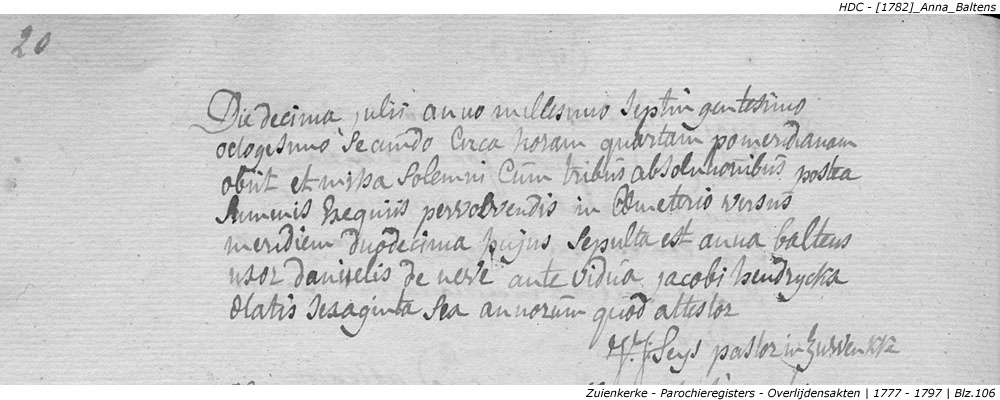 HDC - [1782]_Anna_Baltens
20
Die decima julii anno millesimo septin gentesimo
octogesimo secundo circa horam quartam pomeridianam
obiit et missa solemni cum tribus absolutionibus postea
summis exequiis persolvendis in Cometerio versus
meridiem duodecima hujus sepulta est anna baltens
uxor danielis de neve ante vidua jacobi hendryckx
Etatis sexaginta sex annorum quod attestor
J: Seys pastor in
Zuienkerke - Parochieregisters - Overlijdensakten | 1777 - 1797 | Blz.106